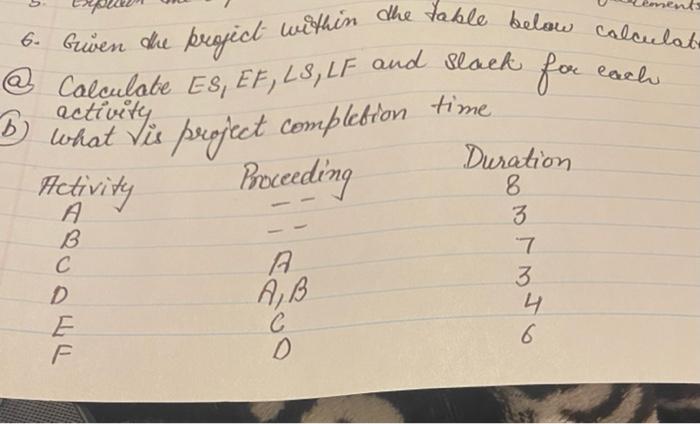 5. Explain the
6. Given the project within the table below calculat
ⓐ Calculate ES, EF, LS, LF and slack for each
activity
ⓑ what is project completion time
Activity Proceeding Duration
A -- 8
B -- 3
C A 7
D A, B 3
E C 4
F D 6